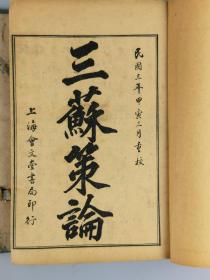 民國三年甲寅二月重校
三蘇策論
上海會文堂書局印行